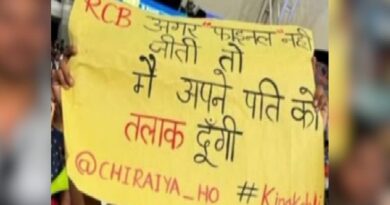 RCB अगर "फाइनल" नही
जीती तो
मै अपने पति को
तलाक दूँगी
@CHIRAIYA_HO #KingKohli